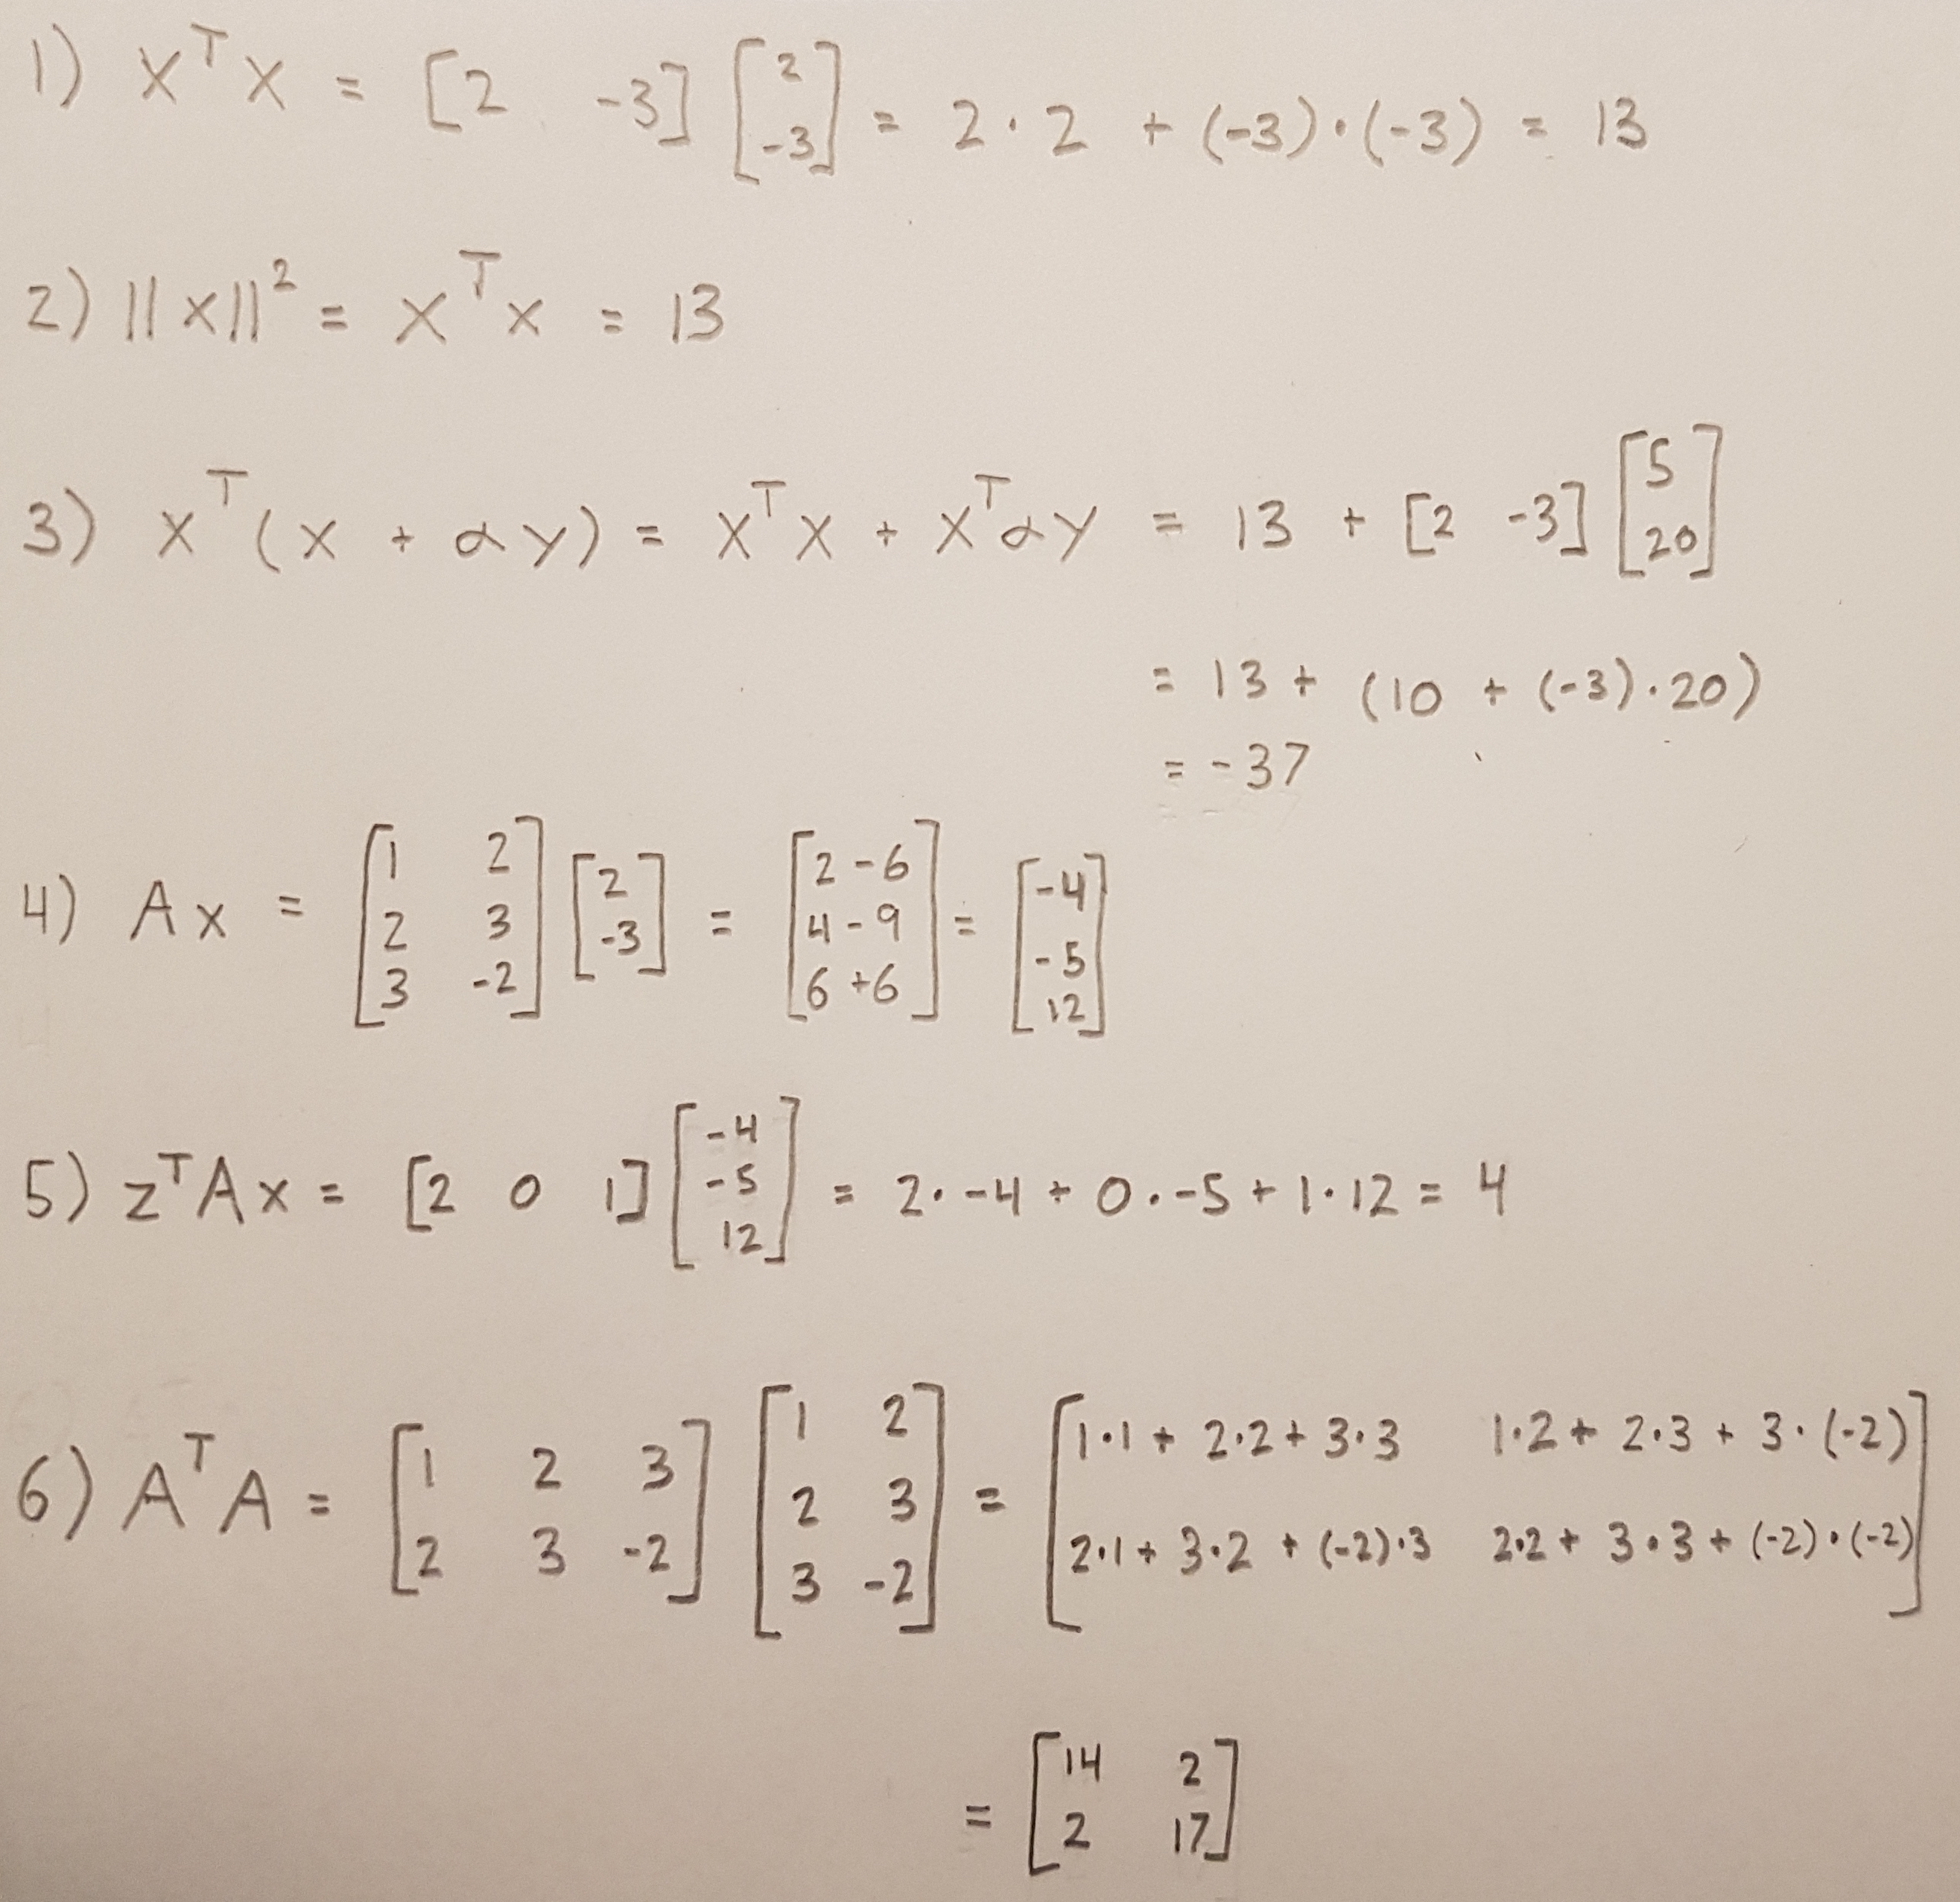 1) xᵀx = [2 -3] [2; -3] = 2·2 + (-3)·(-3) = 13
2) ||x||² = xᵀx = 13
3) xᵀ(x + αy) = xᵀx + xᵀαy = 13 + [2 -3] [5; 20]
= 13 + (10 + (-3)·20)
= -37
4) Ax = [1 2; 2 3; 3 -2] [2; -3] = [2-6; 4-9; 6+6] = [-4; -5; 12]
5) zᵀAx = [2 0 1] [-4; -5; 12] = 2·-4 + 0·-5 + 1·12 = 4
6) AᵀA = [1 2 3; 2 3 -2] [1 2; 2 3; 3 -2] = [1·1 + 2·2 + 3·3 1·2 + 2·3 + 3·(-2); 2·1 + 3·2 + (-2)·3 2·2 + 3·3 + (-2)·(-2)]
= [14 2; 2 17]